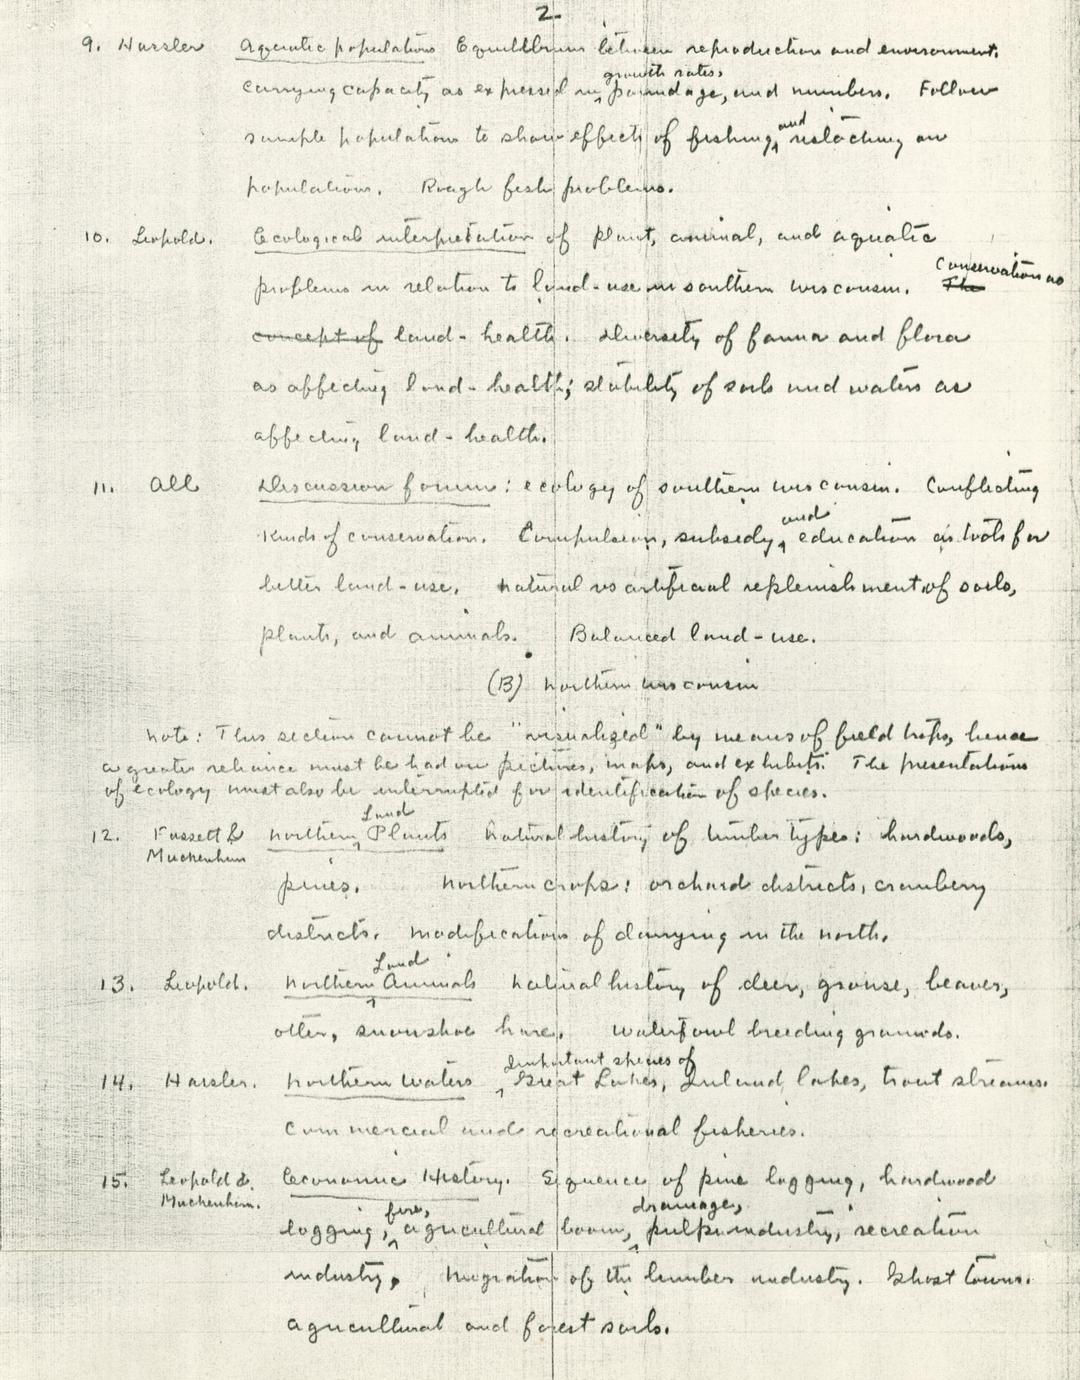 2
9. Hasler Aquatic populations Equilibrium between reproduction and environment.
growth rates,
carrying capacity as expressed in poundage, and numbers. Follow
sample populations to show effects of fishing, and restocking on
populations. Rough fish problems.
10. Leopold. Ecological interpretation of plant, animal, and aquatic
problems in relation to land-use in southern Wisconsin. The Conservation as
concept of land-health. Diversity of fauna and flora
as affecting land-health; stability of soils and waters as
affecting land-health.
11. All Discussion forum: ecology of southern Wisconsin. Conflicting
kinds of conservation. Compulsion, subsidy, and education as tools for
better land-use. Natural vs artificial replenishment of soils,
plants, and animals. Balanced land-use.
(B) Northern Wisconsin
Note: This section cannot be "visualized" by means of field trips, hence
a greater reliance must be had on pictures, maps, and exhibits. The presentations
of ecology must also be interrupted for identification of species.
12. Fassett & Muckenhirn Northern Land Plants Natural history of timber types: hardwoods,
pines. Northern crops: orchard districts, cranberry
districts. Modifications of dairying in the north.
13. Leopold. Northern Land Animals Natural history of deer, grouse, beaver,
otter, snowshoe hare. Waterfowl breeding grounds.
14. Hasler. Northern Waters Important species of Great Lakes, Inland lakes, trout streams.
Commercial and recreational fisheries.
15. Leopold & Muckenhirn. Economic History. Sequence of pine logging, hardwood
logging, fire, agricultural boom, drainage, pulp industry, recreation
industry. Migration of the lumber industry. Ghost towns.
Agricultural and forest soils.